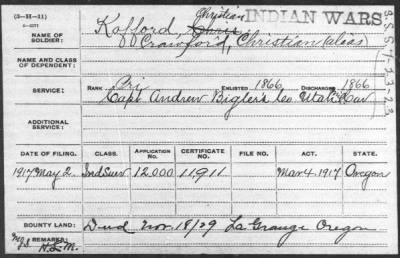 (3-H-11)
INDIAN WARS
NAME OF SOLDIER:
Kofford, Christian
Crawford, Christian (alias)
NAME AND CLASS OF DEPENDENT:
SERVICE:
RANK Pri ENLISTED 1866 DISCHARGED 1866
Capt Andrew Bigler's Co. Utah Cav
ADDITIONAL SERVICE:
DATE OF FILING. CLASS. APPLICATION No. CERTIFICATE No. FILE NO. ACT. STATE.
1917 May 2. Ind Surv 12,000 11,911 Mar 4. 1917 Oregon
BOUNTY LAND:
Died Nov. 18/29 La Grange Oregon
REMARKS: